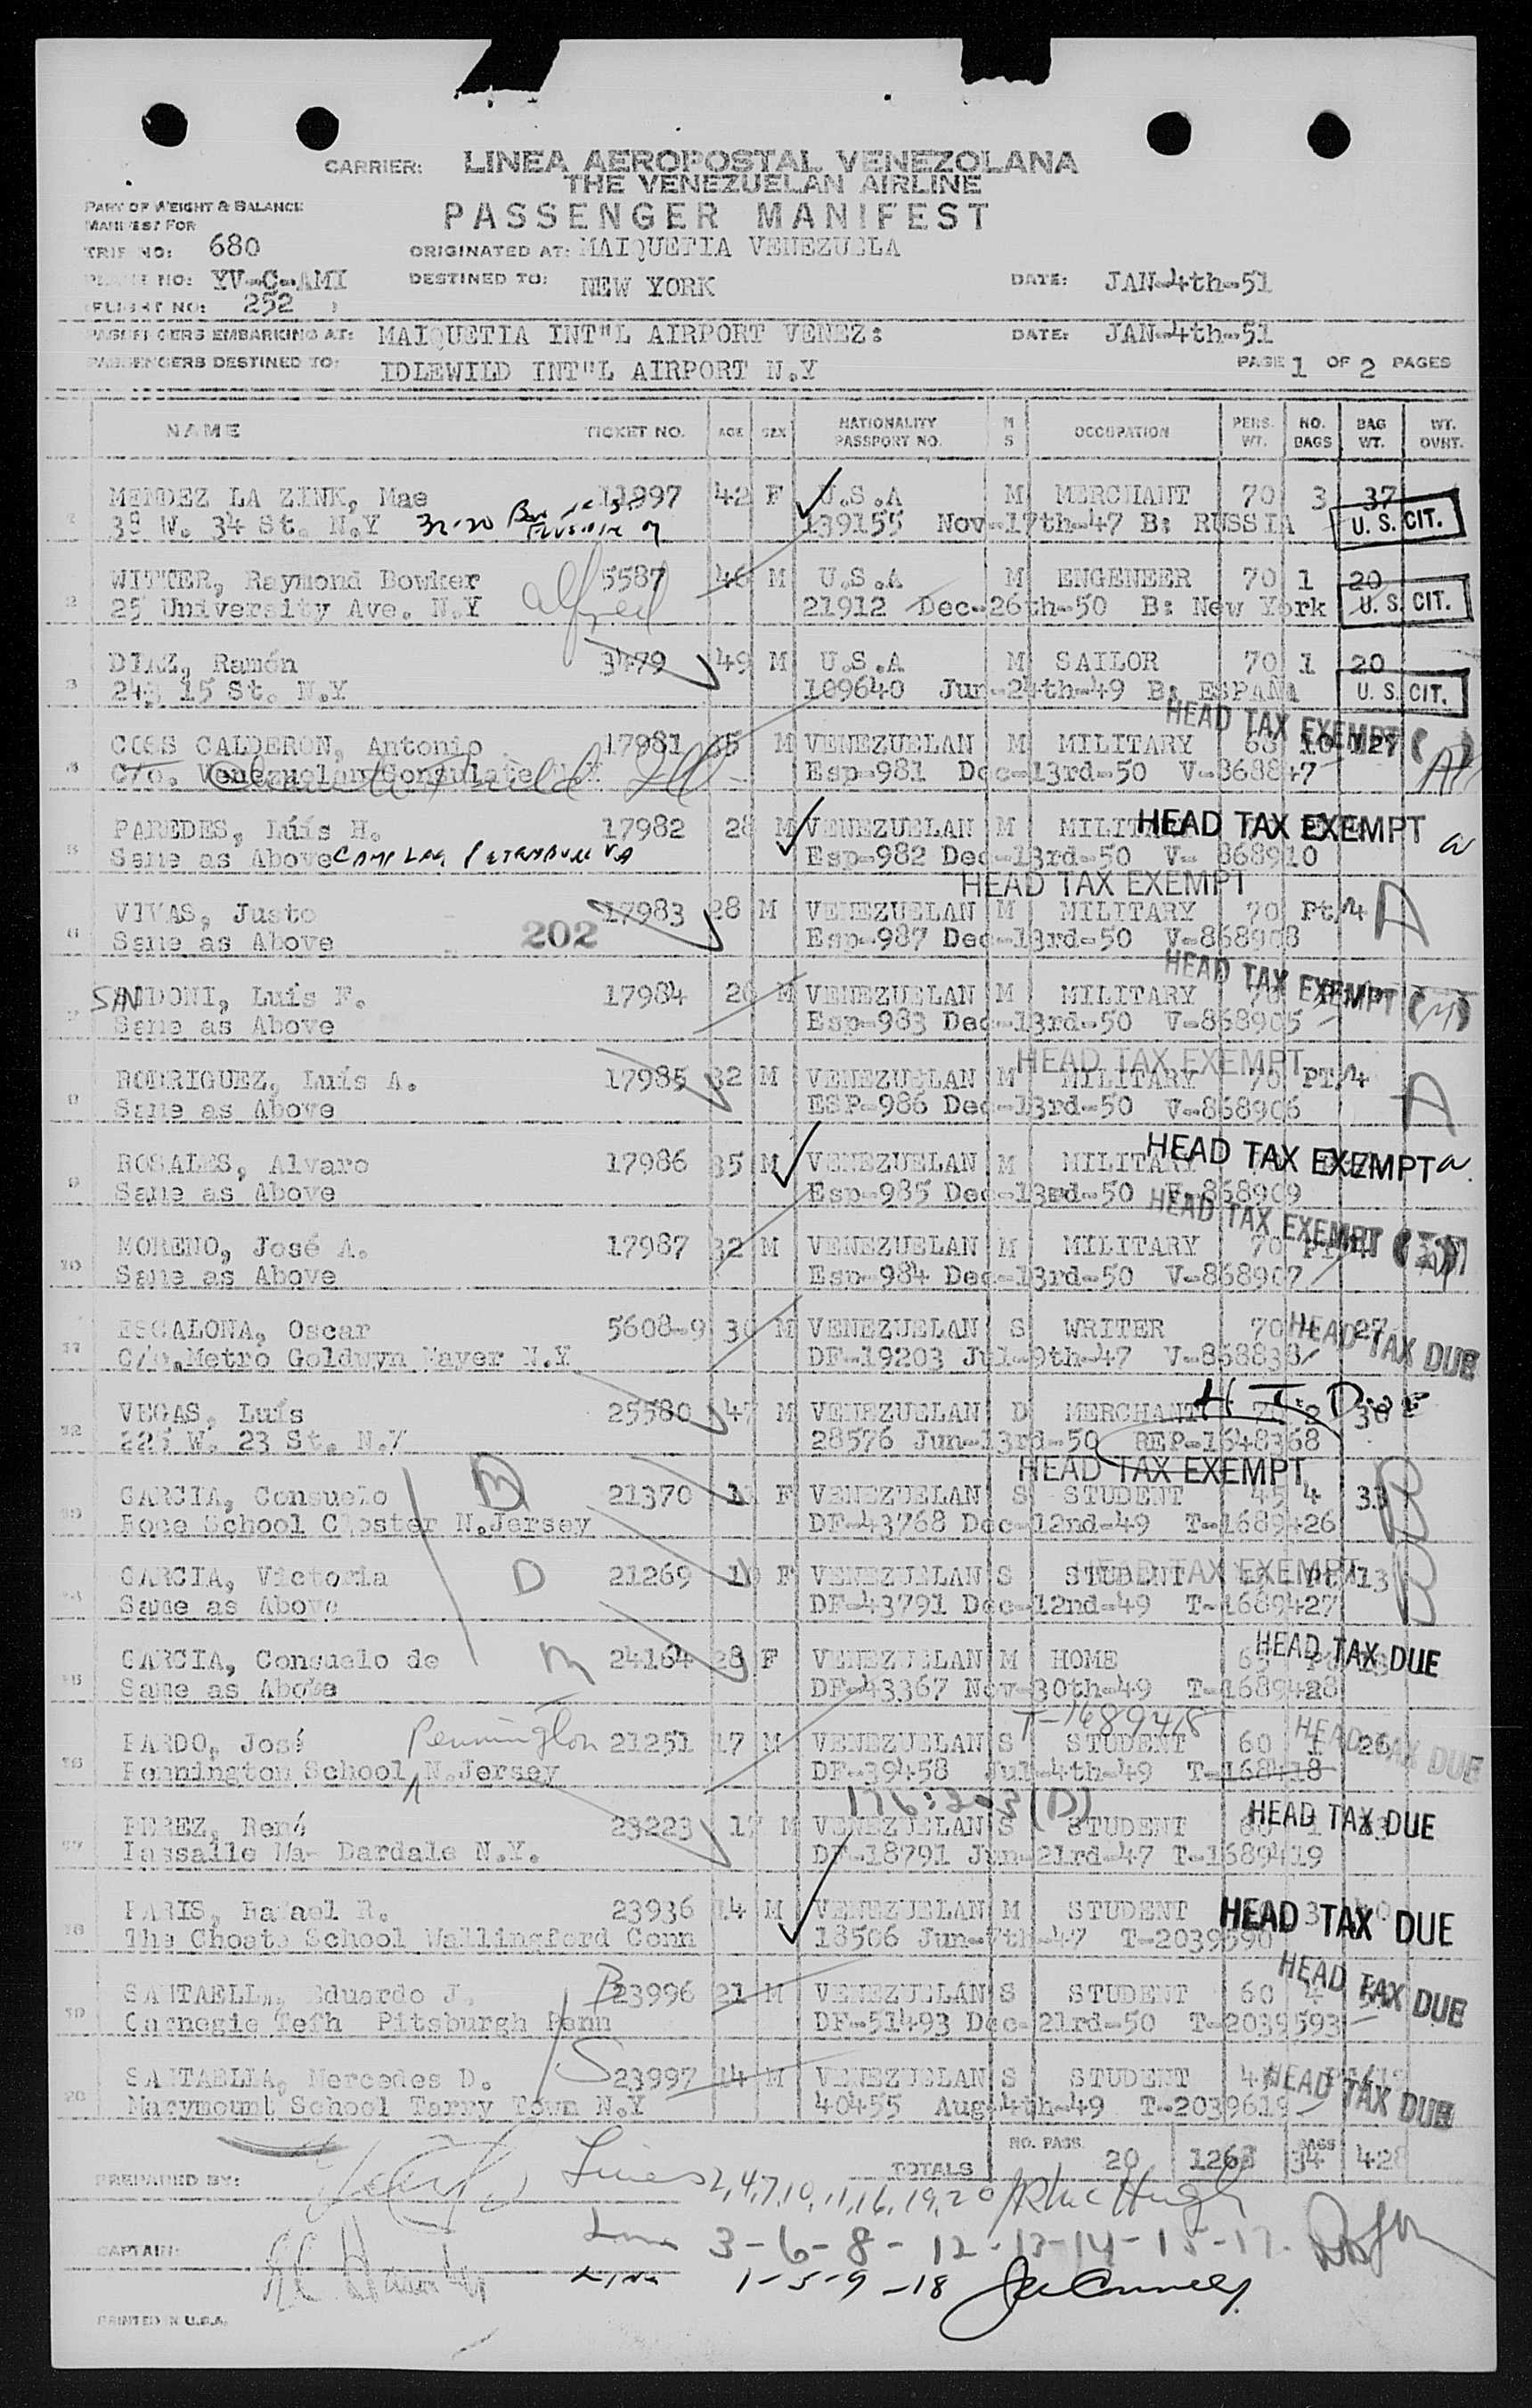 CARRIER: LINEA AEROPOSTAL VENEZOLANA
THE VENEZUELAN AIRLINE
PART OF WEIGHT & BALANCE
MANIFEST FOR
PASSENGER MANIFEST
TRIP NO: 680
ORIGINATED AT: MAIQUETIA VENEZUELA
PLANE NO: YV-C-AMI
DESTINED TO: NEW YORK
DATE: JAN-4th-51
(FLIGHT NO: 252 )
PASSENGERS EMBARKING AT: MAIQUETIA INT"L AIRPORT VENEZ:
DATE: JAN-4th-51
PASSENGERS DESTINED TO: IDLEWILD INT"L AIRPORT N.Y
PAGE 1 OF 2 PAGES
NAME TICKET NO. AGE SEX NATIONALITY PASSPORT NO. M S OCCUPATION PERS. WT. NO. BAGS BAG WT. WT. OVHT.
MENDEZ LA ZINK, Mae 11897 42 F U.S.A M MERCHANT 70 3 37
38 W. 34 St. N.Y 32-20 139155 Nov-17th-47 B: RUSSIA U. S. CIT.
WITTER, Raymond Bowker 5587 46 M U.S.A M ENGENEER 70 1 20
2 25 University Ave. N.Y Alfred 21912 Dec-26th-50 B: New York U. S. CIT.
DIAZ, Ramón 3479 49 M U.S.A M SAILOR 70 1 20
3 15 St. N.Y 109640 Jun-24th-49 B: ESPAÑA U. S. CIT.
HEAD TAX EXEMPT
COSS CALDERON, Antonio 17981 35 M VENEZUELAN M MILITARY 68 10 127
4 C/o. Venezuelan Consulate Esp-981 Dec-13rd-50 V-868847
PAREDES, Luís H. 17982 28 M VENEZUELAN M HEAD TAX EXEMPT
5 Same as Above CAMP LEE PETERSBURG VA Esp-982 Dec-13rd-50 V- 868910
HEAD TAX EXEMPT
VIVAS, Justo 17983 28 M VENEZUELAN M MILITARY 70 Pt/4 A
6 Same as Above 202 Esp-987 Dec-13rd-50 V-868908
HEAD TAX EXEMPT (M)
SANDONI, Luís F. 17984 26 M VENEZUELAN M MILITARY 70
7 Same as Above Esp-983 Dec-13rd-50 V-868905
HEAD TAX EXEMPT
RODRIGUEZ, Luís A. 17985 32 M VENEZUELAN M MILITARY 70 PT/4
8 Same as Above ESP-986 Dec-13rd-50 V-868906 A
ROSALES, Alvaro 17986 35 M VENEZUELAN M MILITARY HEAD TAX EXEMPT
9 Same as Above Esp-985 Dec-13rd-50 V-868909
HEAD TAX EXEMPT
MORENO, José A. 17987 32 M VENEZUELAN M MILITARY 70
10 Same as Above Esp-984 Dec-13rd-50 V-868907
ESCALONA, Oscar 5608-9 30 M VENEZUELAN S WRITER 70 27
11 C/o. Metro Goldwyn Mayer N.Y DF-19203 Jul-9th-47 V-868838 HEAD TAX DUE
H. T. Due
VEGAS, Luís 25580 47 M VENEZUELAN D MERCHANT 70 2 30
12 W. 23 St. N.Y 28576 Jun-13rd-50 REP-1648368
HEAD TAX EXEMPT
GARCIA, Consuelo D 21370 F VENEZUELAN S STUDENT 45 4 33 B
13 School Closter N.Jersey DF-43768 Dec-12nd-49 T-1689426
HEAD TAX EXEMPT
GARCIA, Victoria D 21269 10 F VENEZUELAN S STUDENT 13 B
14 Same as Above DF-43791 Dec-12nd-49 T-1689427
GARCIA, Consuelo de M 24164 28 F VENEZUELAN M HOME HEAD TAX DUE
15 Same as Above DF-43367 Nov-30th-49 T-1689428
T-1689418
PARDO, José Pennington 21251 17 M VENEZUELAN S STUDENT 60 1 26 HEAD TAX DUE
16 Pennington School N.Jersey DF-39458 Jul-4th-49 T-168418
176:303(D)
PEREZ, René 23223 17 M VENEZUELAN S STUDENT HEAD TAX DUE
17 Lassalle Ma- Dardale N.Y. DF-18791 Jun-21rd-47 T-1689419
PARIS, Rafael R. 23936 14 M VENEZUELAN M STUDENT HEAD TAX DUE
18 The Choate School Wallingford Conn 18506 Jun-7th-47 T-2039590
SANTAELLA, Eduardo J. 23996 21 M VENEZUELAN S STUDENT 60 4 HEAD TAX DUE
19 Carnegie Tefh Pitsburgh Penn DF-51493 Dec-21rd-50 T-2039593
SANTAELLA, Mercedes D. S 23997 14 M VENEZUELAN S STUDENT HEAD TAX DUE
20 Marymount School Tarry Town N.Y 40455 Aug-4th-49 T-2039619
TOTALS NO. PASS. 20 1268 BAGS 34 428
PREPARED BY:
Lines 2,4,7,10,11,16,19,20
CAPTAIN:
Line 3-6-8-12-13-14-15-17.
Line 1-5-9-18
PRINTED IN U.S.A.